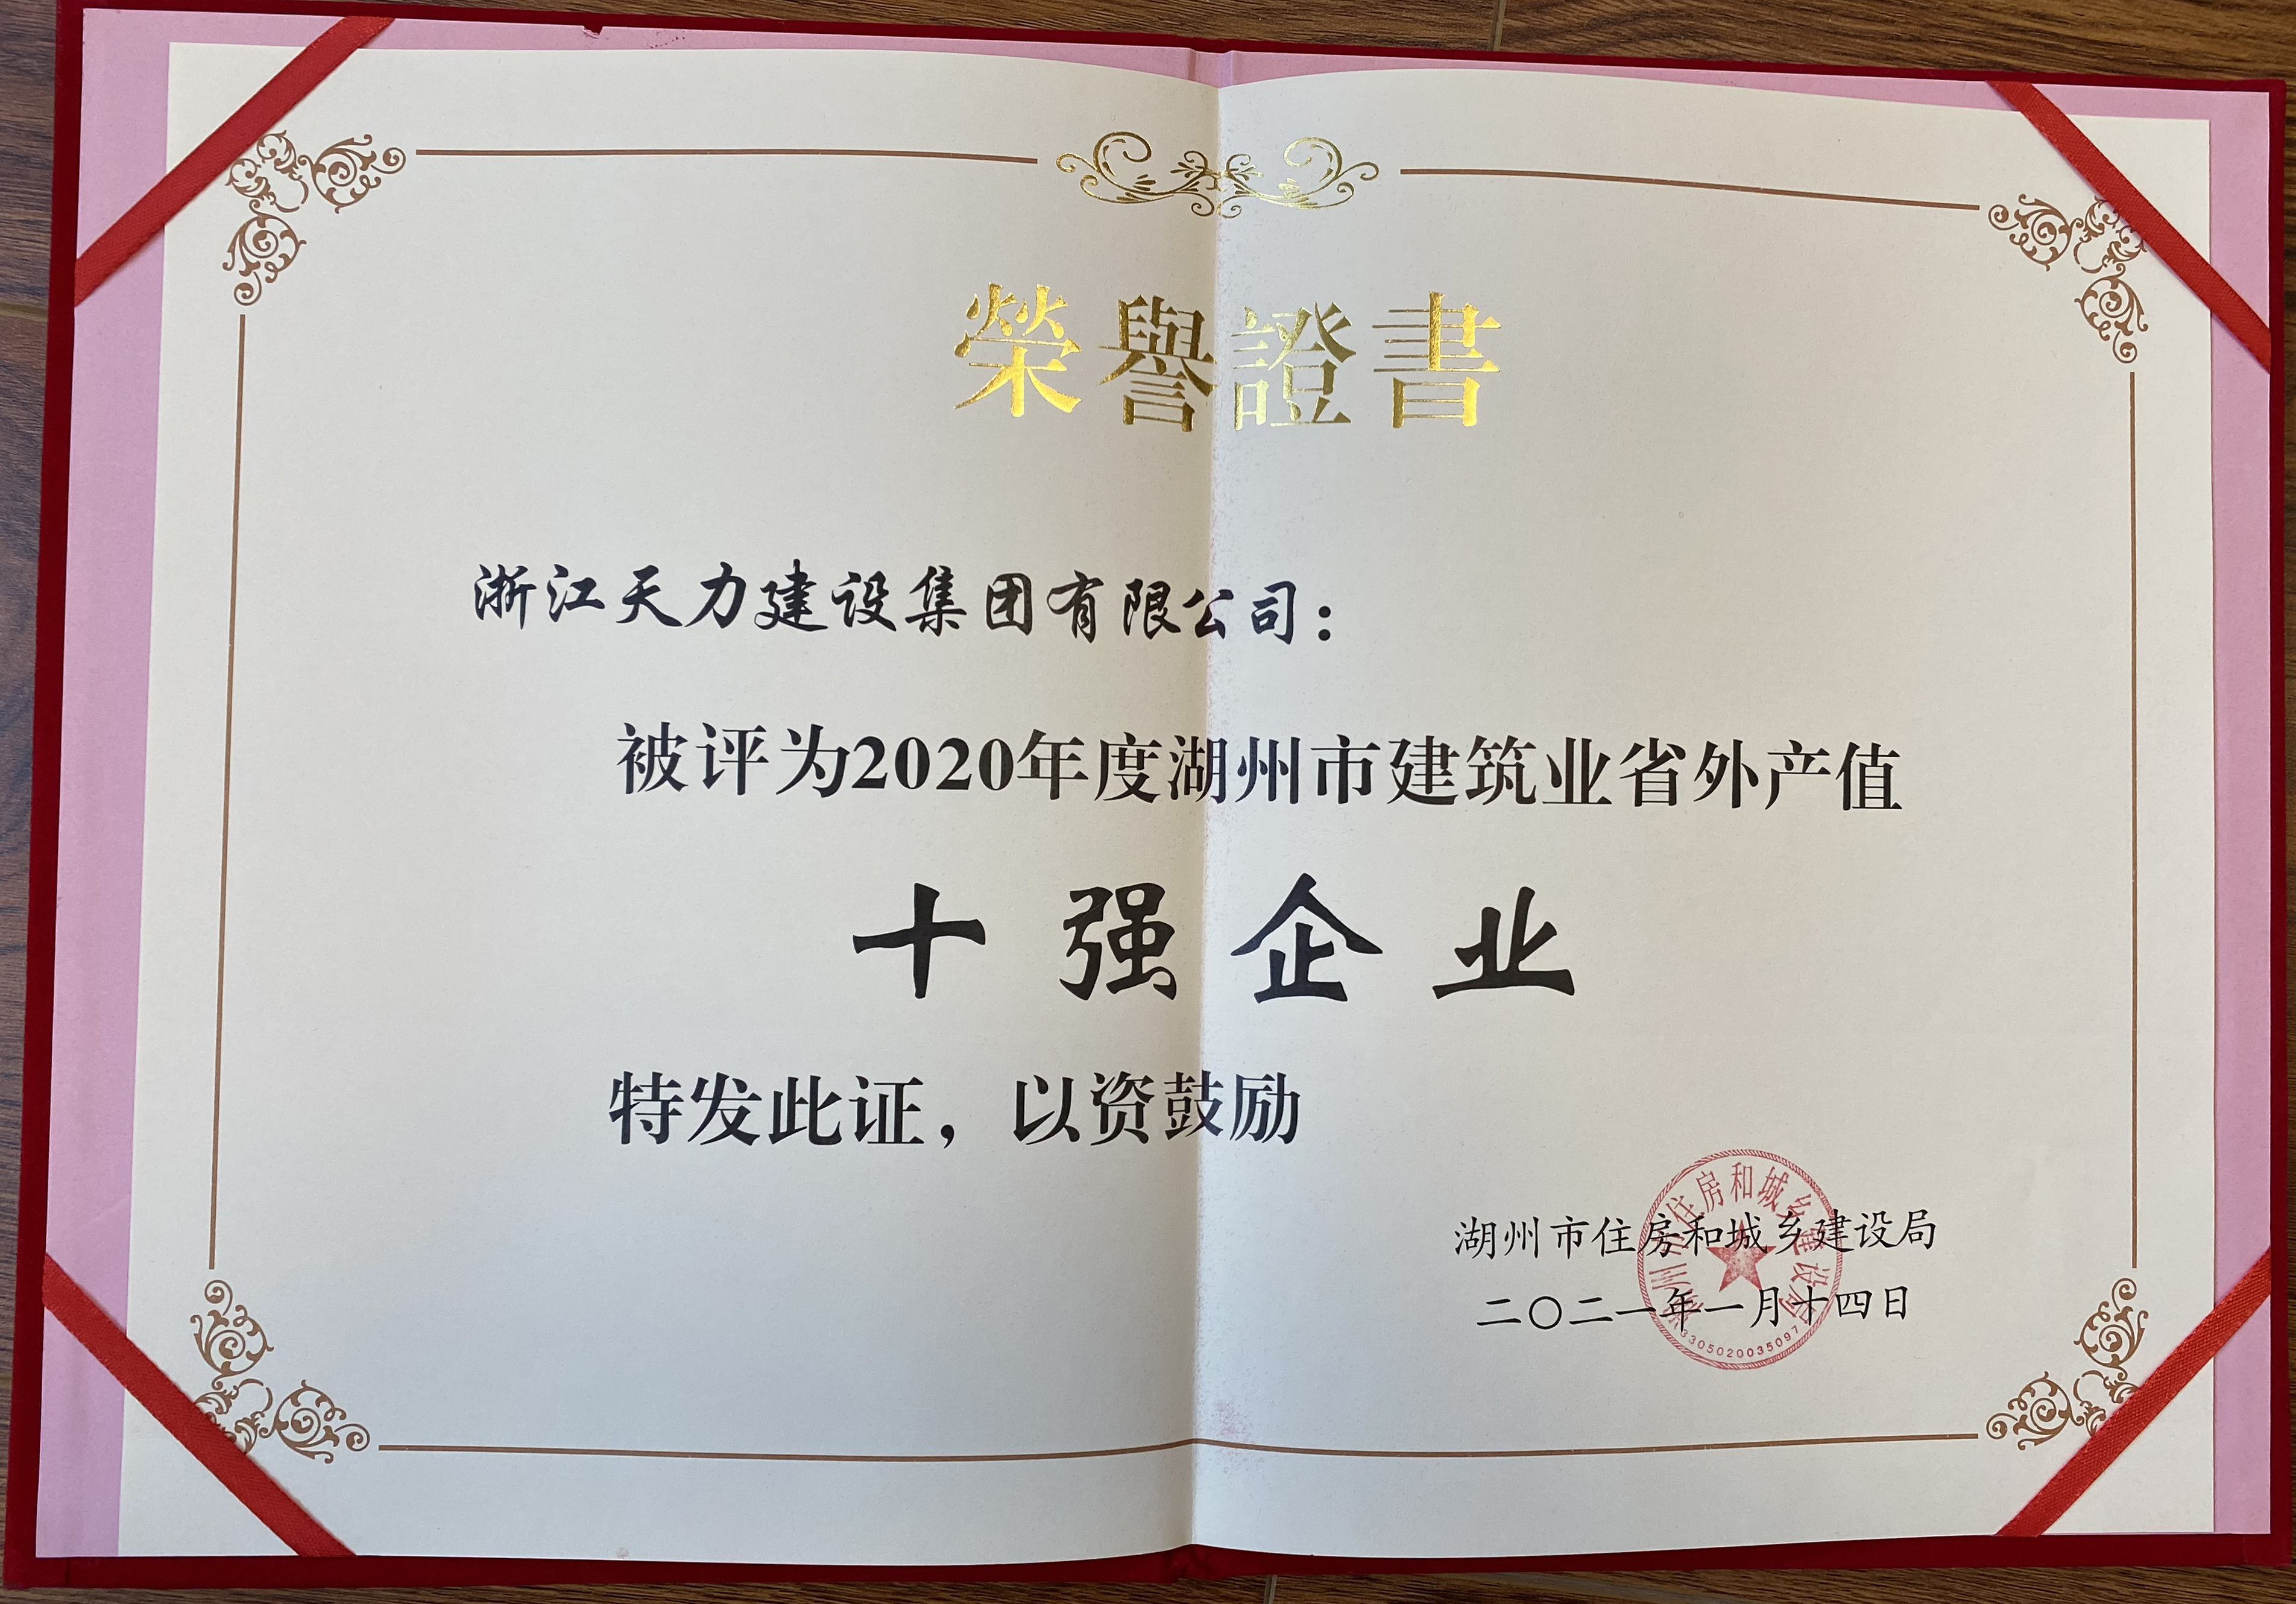 榮譽證書
浙江天力建设集团有限公司：
被评为2020年度湖州市建筑业省外产值
十强企业
特发此证，以资鼓励
湖州市住房和城乡建设局
二〇二一年一月十四日
湖州市住房和城乡建设局
3305020035097